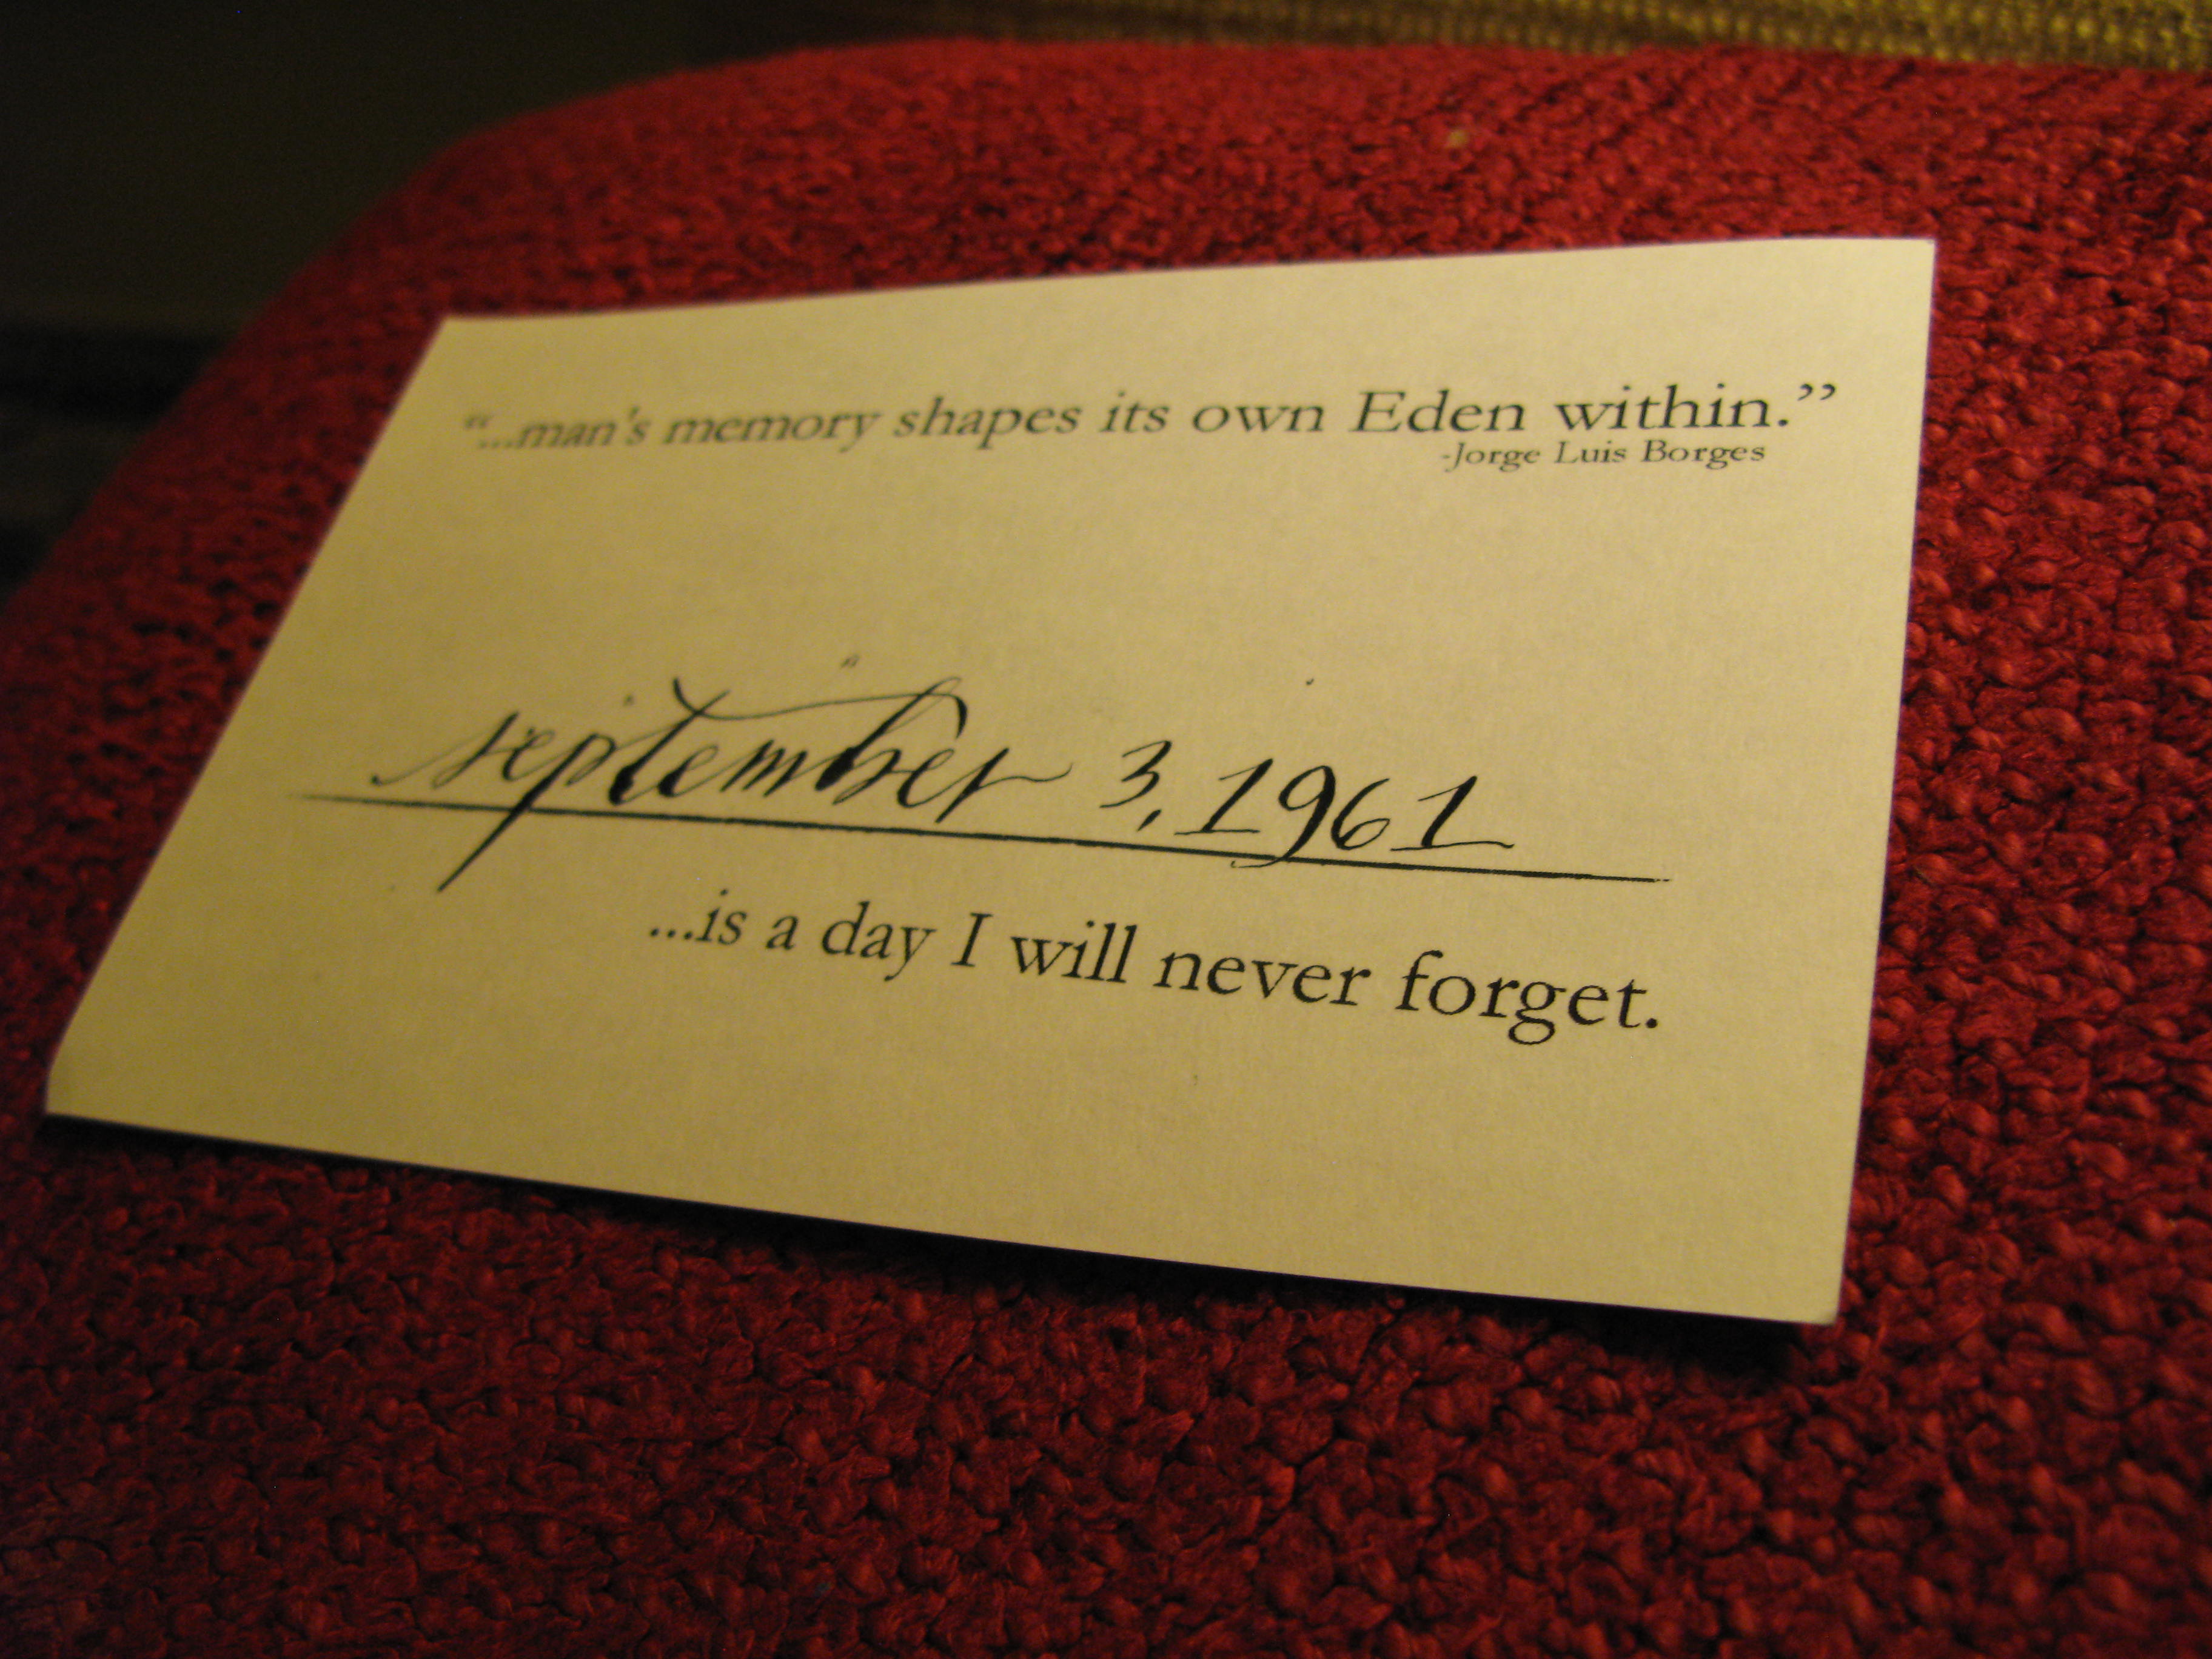 “...man's memory shapes its own Eden within.”
-Jorge Luis Borges
september 3, 1961
...is a day I will never forget.